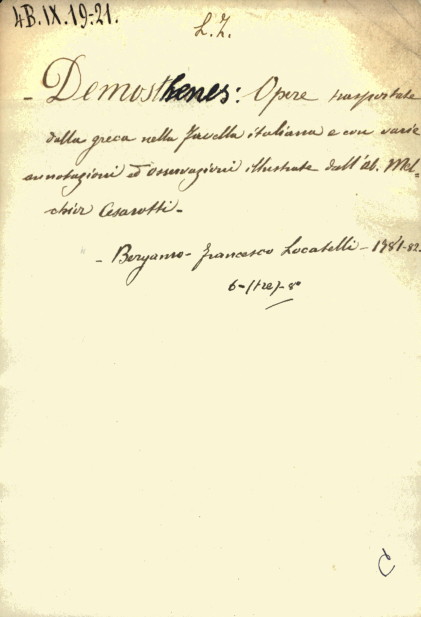 4B.IX.19-21.
L. Z.
- Demosthenes: Opere trasportate
dalla greca nella favella italiana e con varie
annotazioni ed osservazioni illustrate dall'ab. Mel-
chior Cesarotti -
- Bergamo - Francesco Locatelli - 1781-82.
6 - (tre) - 8°